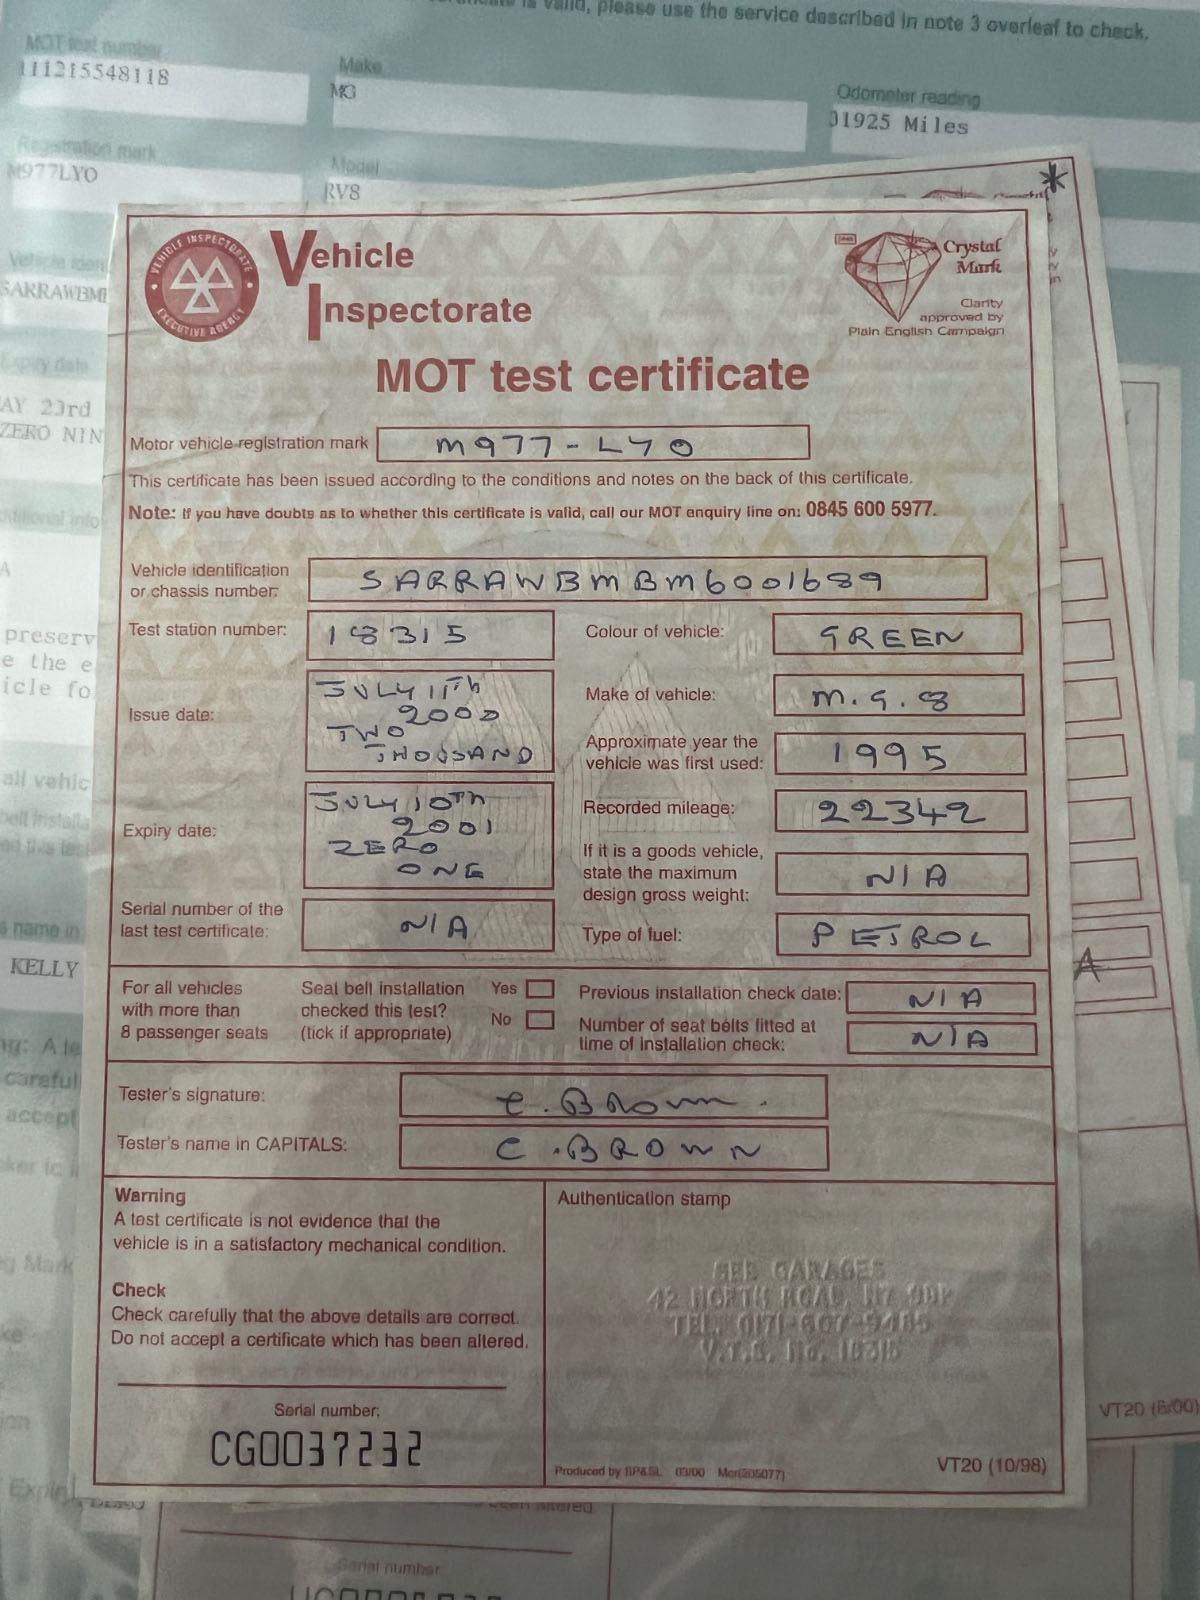 is valid, please use the service described in note 3 overleaf to check.
MOT test number
111215548118
Make
MG
Odometer reading
31925 Miles
Registration mark
M977LYO
Model
RV8
SARRAWBM
Expiry date
AY 23rd
ZERO NIN
A
preserv
e the e
icle fo
all vehic
s name in
KELLY
careful
accept
VEHICLE INSPECTORATE
EXECUTIVE AGENCY
Vehicle
Inspectorate
Crystal
Mark
Clarity
approved by
Plain English Campaign
MOT test certificate
Motor vehicle registration mark M977-LYO
This certificate has been issued according to the conditions and notes on the back of this certificate.
Note: If you have doubts as to whether this certificate is valid, call our MOT enquiry line on: 0845 600 5977.
Vehicle identification
or chassis number: SARRAWBMBM6001689
Test station number: 18315
Colour of vehicle: GREEN
Issue date: JULY 11th
2000
TWO
THOUSAND
Make of vehicle: M.G.8
Approximate year the
vehicle was first used: 1995
Expiry date: JULY 10TH
2001
ZERO
ONE
Recorded mileage: 22342
If it is a goods vehicle,
state the maximum
design gross weight: N/A
Serial number of the
last test certificate: N/A
Type of fuel: PETROL
For all vehicles
with more than
8 passenger seats
Seat belt installation
checked this test?
(tick if appropriate)
Yes
No
Previous installation check date: N/A
Number of seat belts fitted at
time of installation check: N/A
Tester's signature: C. Brown.
Tester's name in CAPITALS: C. BROWN
Warning
A test certificate is not evidence that the
vehicle is in a satisfactory mechanical condition.
Check
Check carefully that the above details are correct.
Do not accept a certificate which has been altered.
Serial number:
CG0037232
Authentication stamp
GARAGES
42 NORTH ROAD, N7 9DP
TEL. 0171-607-9485
V.T.S. No. 18315
Produced by BP&SL 03/00 Mcr(205077)
VT20 (10/98)
VT20 (6/00)
A
Serial number